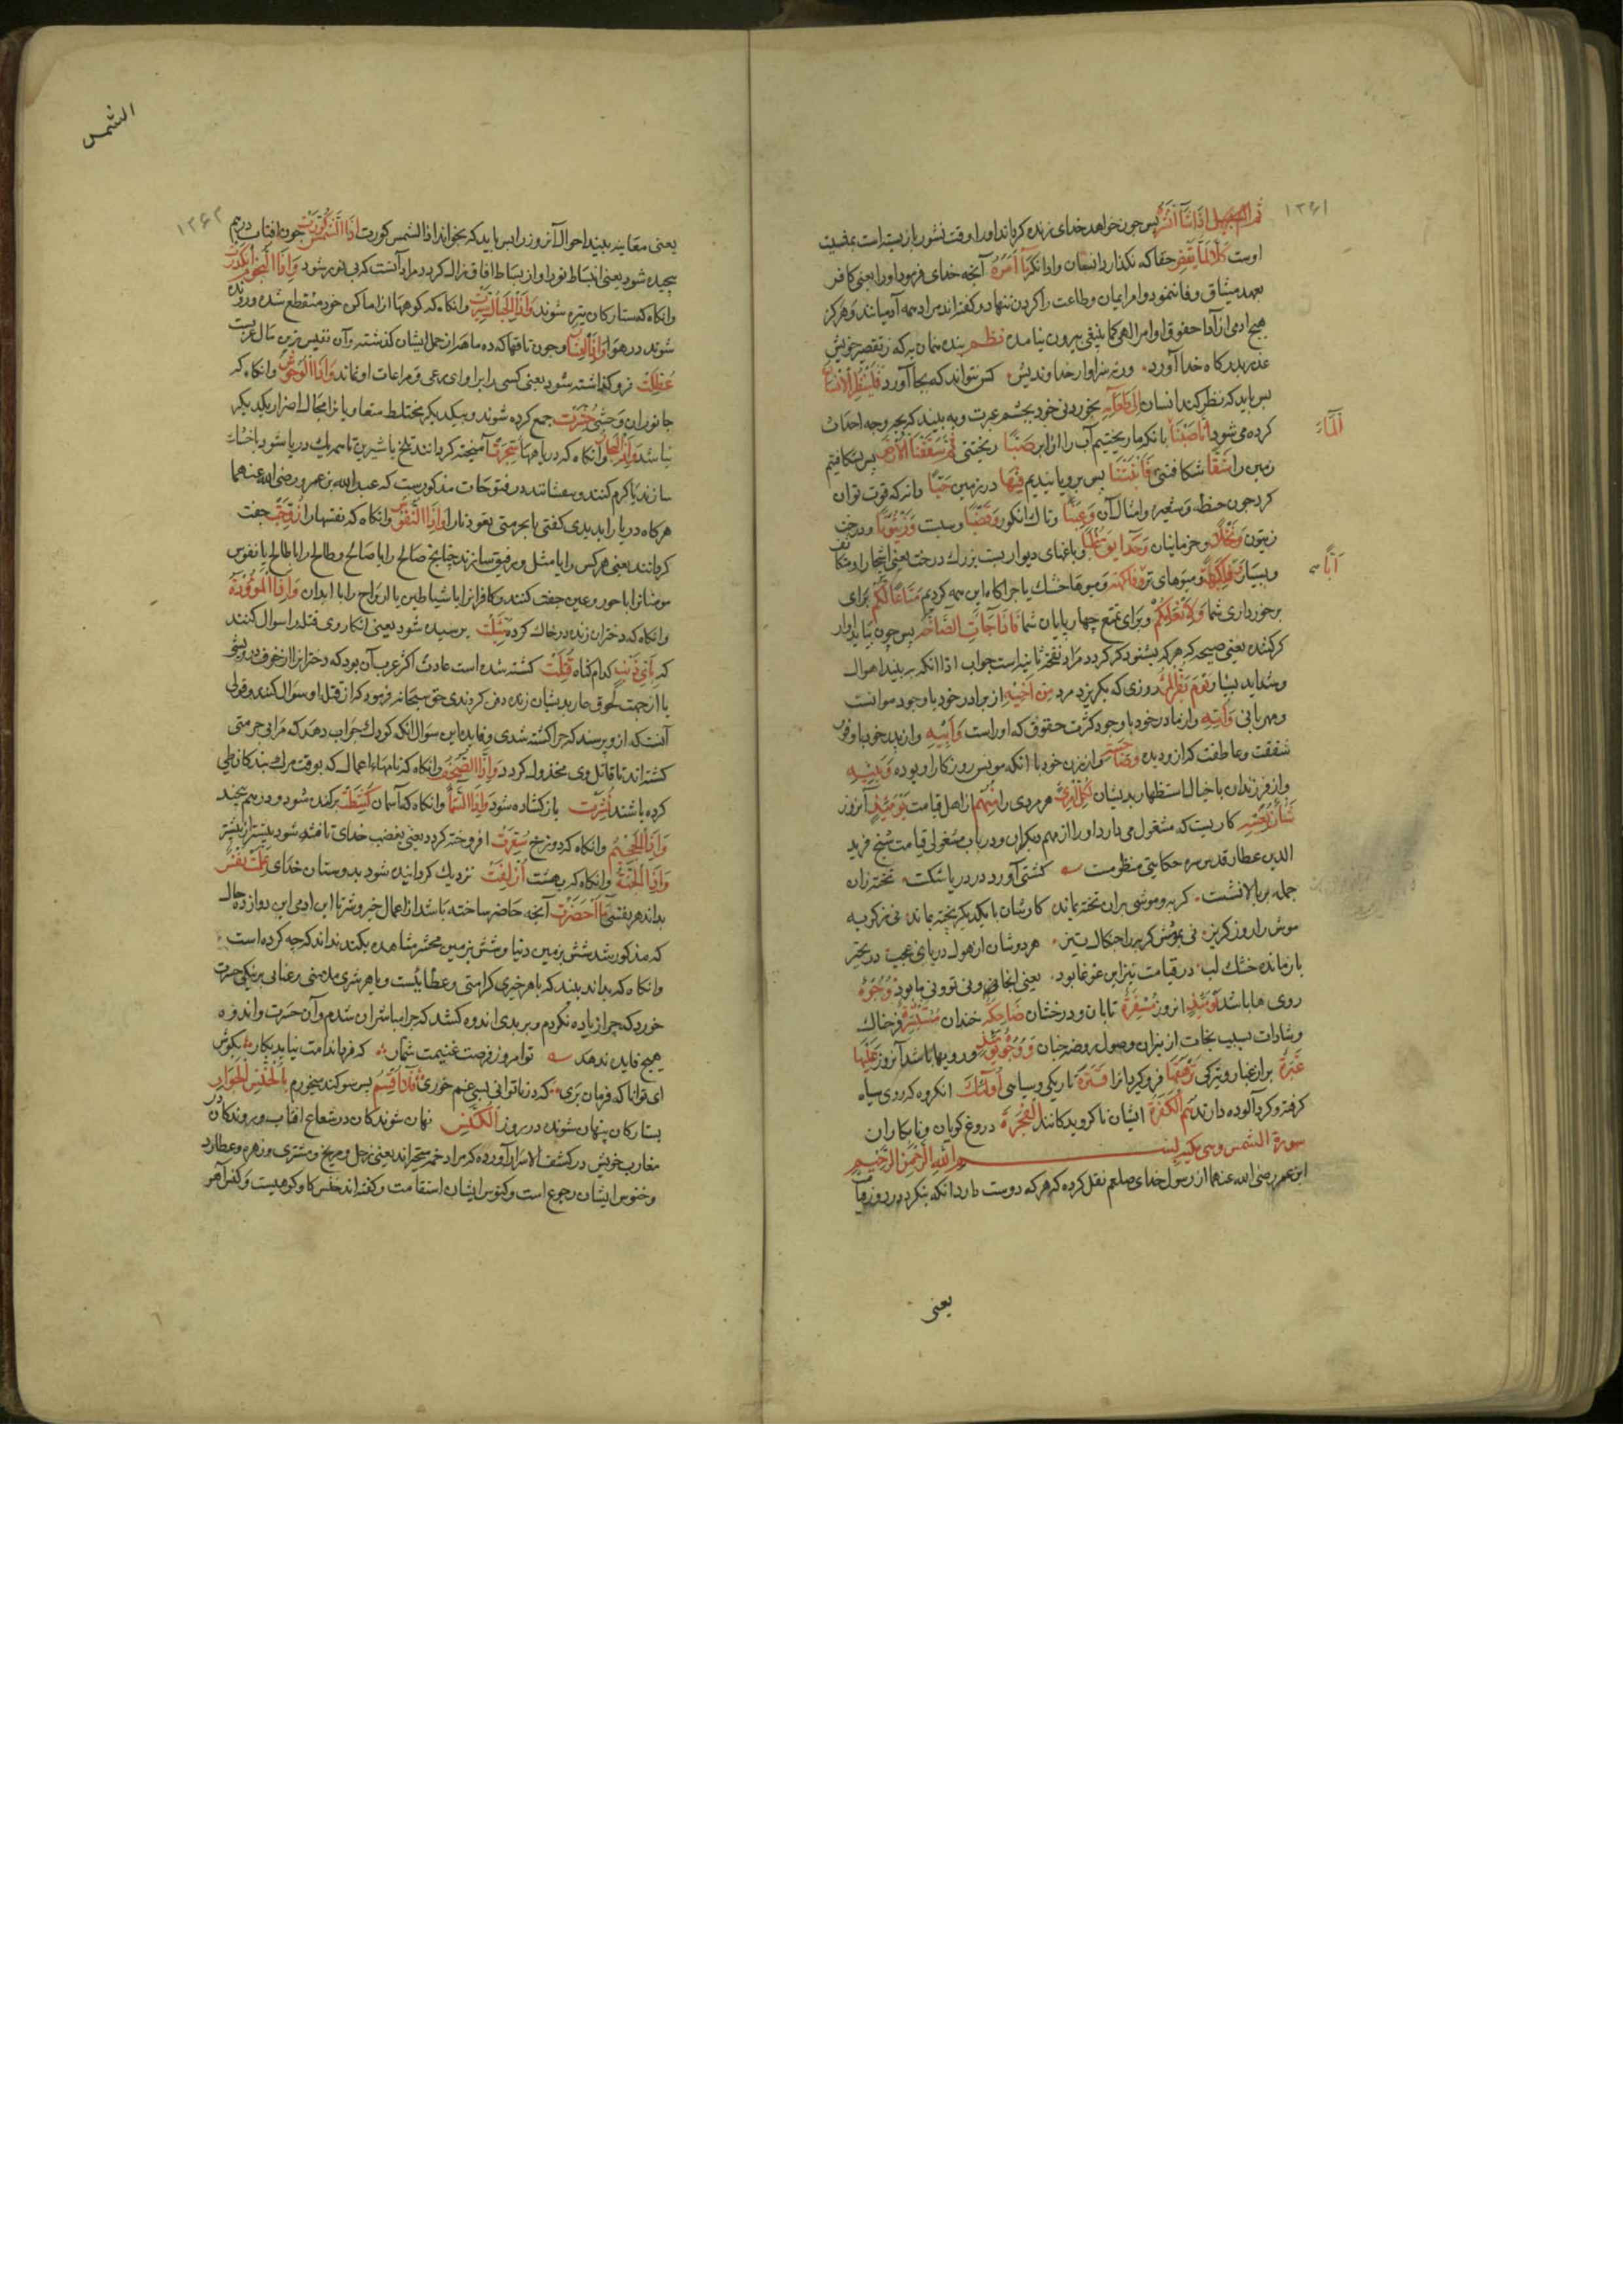 ۱۲۶۱
ثم اذا شآء انشره پس چون خواهد خدای زنده کرداند اورا و وقت نشور باز بسته است بمشیت
اوست کلا لما یقض حقا که نکذارد انسان و ادا نکرد ما امره آنچه خدای فرمود اورا یعنی کافر
بعهد میثاق وفا ننمود و امر ایمان و طاعت را کردن ننهاد و کفته اند مراد همه آدمیانند و هرکز
هیچ ادمی از ادا حقوق اوامر الهی کما ینبغی بیرون نیامده نظم بنده همان به که ز تقصیر خویش
عذر بدرکاه خدا آورد ورنه سزاوار خداوندیش کس نتواند که بجا آورد فلینظر الانسان
پس باید که نظر کند انسان الی طعامه بخوردنی خود بچشم عبرت و به بیند که بچه وجه احداث
کرده می شود انا صببنا بانکه ما ریختیم آب را از ابر صبا ریختنی ثم شققنا الارض پس بشکافتیم
المآء
زمین را شقا شکافتنی فانبتنا پس برویانیدیم فیها در زمین حبا دانه که قوت توان
کرد چون حنطه و شعیر و امثال آن و عنبا و تاك انکور و قضبا و سبت و زیتونا و درخت
زیتون و نخلا و خرمابنان و حدایق غلبا و باغهای دیوار بست بزرك درخت یعنی اشجار او
و بسیار و فاکهة و میوهای تر و میوها خشك یا چراکاه این همه کردیم متاعا لکم برای
ابا
برخورداری شما و لانعامکم و برای تمتع چهار پایان شما فاذا جآءت الصاخه پس چون بیاید اواز
کر کننده یعنی صیحه که هر که بشنود کر کردد مراد نفخه ثانیه است جواب اذا انکه به بیند اهوال
و شداید بسیار یوم یفر المرء روزی که بکریزد مرد من اخیه از برادر خود باوجود موانست
و مهربانی و امه و از مادر خود باوجود کثرت حقوق که اوراست و ابیه و از پدر خود با وفور
شفقت و عاطفت که از و دیده و صاحبته و از زن خود با انکه مونس روزکار او بوده و بنیه
و از فرزندان با خیال استظهار بدیشان لکل امرئ هر مردی را منهم از اهل قیامت یومئذ آنروز
شان یغنیه کاریست که مشغول می دارد اورا از مهم دیکران و درباب مشغولی قیامت شیخ فرید
الدین عطار قدس سره حکایتی منظومست کشتی آورد در دریا شکست تخته زان
جمله بر بالا نشست کربه و موشی بران تخته بماند کارشان با یکدیکر پخته بماند نی ز کربه
موش را روز کریز نی بموش کربه را چنکال تیز هردوشان از هول دریای عجب در تحیر
بازمانده خشك لب در قیامت نیز این غوغا بود یعنی انجا نی و نی تو و نی ما بود وجوه
روی ها باشد یومئذ انروز مسفرة تابان و درخشان ضاحکة خندان مستبشرة فرحناك
و شادان بسبب نجات از نیران و وصول بروضه جنان و وجوه یومئذ و رویها باشد آنروز علیها
غبرة بران غبار و تیرکی ترهقها فروکیرد انرا قترة تاریکی و سیاهی اولئك انکروه که روی سیاه
کرفته و کرد آلوده دارند هم الکفرة ایشان ناکرویدکانند الفجرة دروغ کویان و نابکاران
سورة الشمس وهی مکیه بسم الله الرحمن الرحیم
ابن عمر رضی الله عنهما از رسول خدای صلعم نقل کرده که هر که دوست دارد انکه بنکرد در روز قیا
یعنی
الشمس
۱۲۶۲
یعنی معاینه بیند احوال آنروز را پس باید که بخواند اذا الشمس کورت اذا الشمس کورت چون افتاب درهم
پیچیده شود یعنی انبساط نور او از بساط افاق زائل کردد مراد آنست که بی نور شود و اذا النجوم انکدرت
و انکاه که ستارکان تیره شوند و اذا الجبال سیرت و انکاه که کوهها از اماکن خود منقطع شده و رونده
شوند در هوا و اذا العشار و چون ناقها که ده ماهه از حمل ایشان کذشته و آن نفیس ترین مال عربست
عطلت فروکذاشته شود یعنی کسی را پروای رعی و مراعات او نماند و اذا الوحوش و انکاه که
جانوران وحشی حشرت جمع کرده شوند و بیکدیکر مختلط و ایشانرا مجال اضرار یکدیکر
نباشد و اذا البحار و آنکاه که دریاهها سجرت آمیخته کردانند تلخ با شیرین تا همه یك دریا شود یا خشك
سازند یا کرم کنند و در فتوحات مذکورست که عبدالله بن عمرو رضی الله عنهما
هرکاه دریا را بدیدی کفتی یا بحر متی تعود نارا و اذا النفوس و انکاه که نفسها را زوجت جفت
کردانند یعنی هر کس را با مثل او رفیق سازند چنانچه صالح را با صالح و طالح را با طالح یا نفوس
مومنانرا با حور و عین جفت کنند و کافرانرا با شیاطین یا ارواح را با ابدان و اذا الموؤدة
و انکاه که دختران زنده درخاك کرده سئلت پرسیده شود یعنی انکار وی قتله را سوال کنند
که بای ذنب بکدام کناه قتلت کشته شده است عادت اکثر عرب آن بود که دخترانرا از خوف درویشی
یا از جهت لحوق عار بدیشان زنده دفن کردندی حق سبحانه فرمود که از قتله او سوال کنند و قولی
آنست که ازو پرسند که چرا کشته شدی و فایده این سوال انکه کودك جواب دهد که مرا بی جرمتی
کشته اند تا قاتل وی مخذول کردد و اذا الصحف و انکاه که نامهاء اعمال که بوقت مرك بندکان طی
کرده باشند نشرت باز کشاده شود و اذا السمآء و انکاه که آسمان کشطت برکنده شود و درهم پیچند
و اذا الجحیم و انکاه که دوزخ سعرت افروخته کردد یعنی بغضب خدای تافته شود بیشتر از پیشتر
و اذا الجنة و انکاه که بهشت ازلفت نزدیك کردانیده شود بدوستان خدای علمت نفس
بداند هر نفسی ما احضرت آنچه حاضر ساخته باشد از اعمال خیر و شر تا این ادمی این دوازده حال
که مذکور شد شش بزمین دنیا و شش بزمین محشر مشاهده بکند نداند که چه کرده است
و انکاه که بداند بیند که با هر خیری کرامتی و عطاییست و با هر شری ملامتی و عنایی بر نیکی حسرت
خورد که چرا زیاده نکردم و بر بدی اندوه کشد که چرا مباشر ان شدم و آن حسرت و اندوه
هیچ فایده ندهد تو امروز فرصت غنیمت شمار که فردا ندامت نیاید بکار بکوش
ای توانا که فرمان بری که در ناتوانی بسی غم خوری فلا اقسم پس سوکند میخورم بالخنس الجوار
بستارکان پنهان شونده در روز الکنس نهان شوندکان در شعاع افتاب و روندکان در
مغارب خویش در کشف الاسرار آورده که مراد خمسه متحیره اند یعنی زحل و مریخ و مشتری و زهره و عطارد
و خنوس ایشان رجوع است و کنوس ایشان استقامت و کفته اند خنس کاو کوهیست و کنس آهو